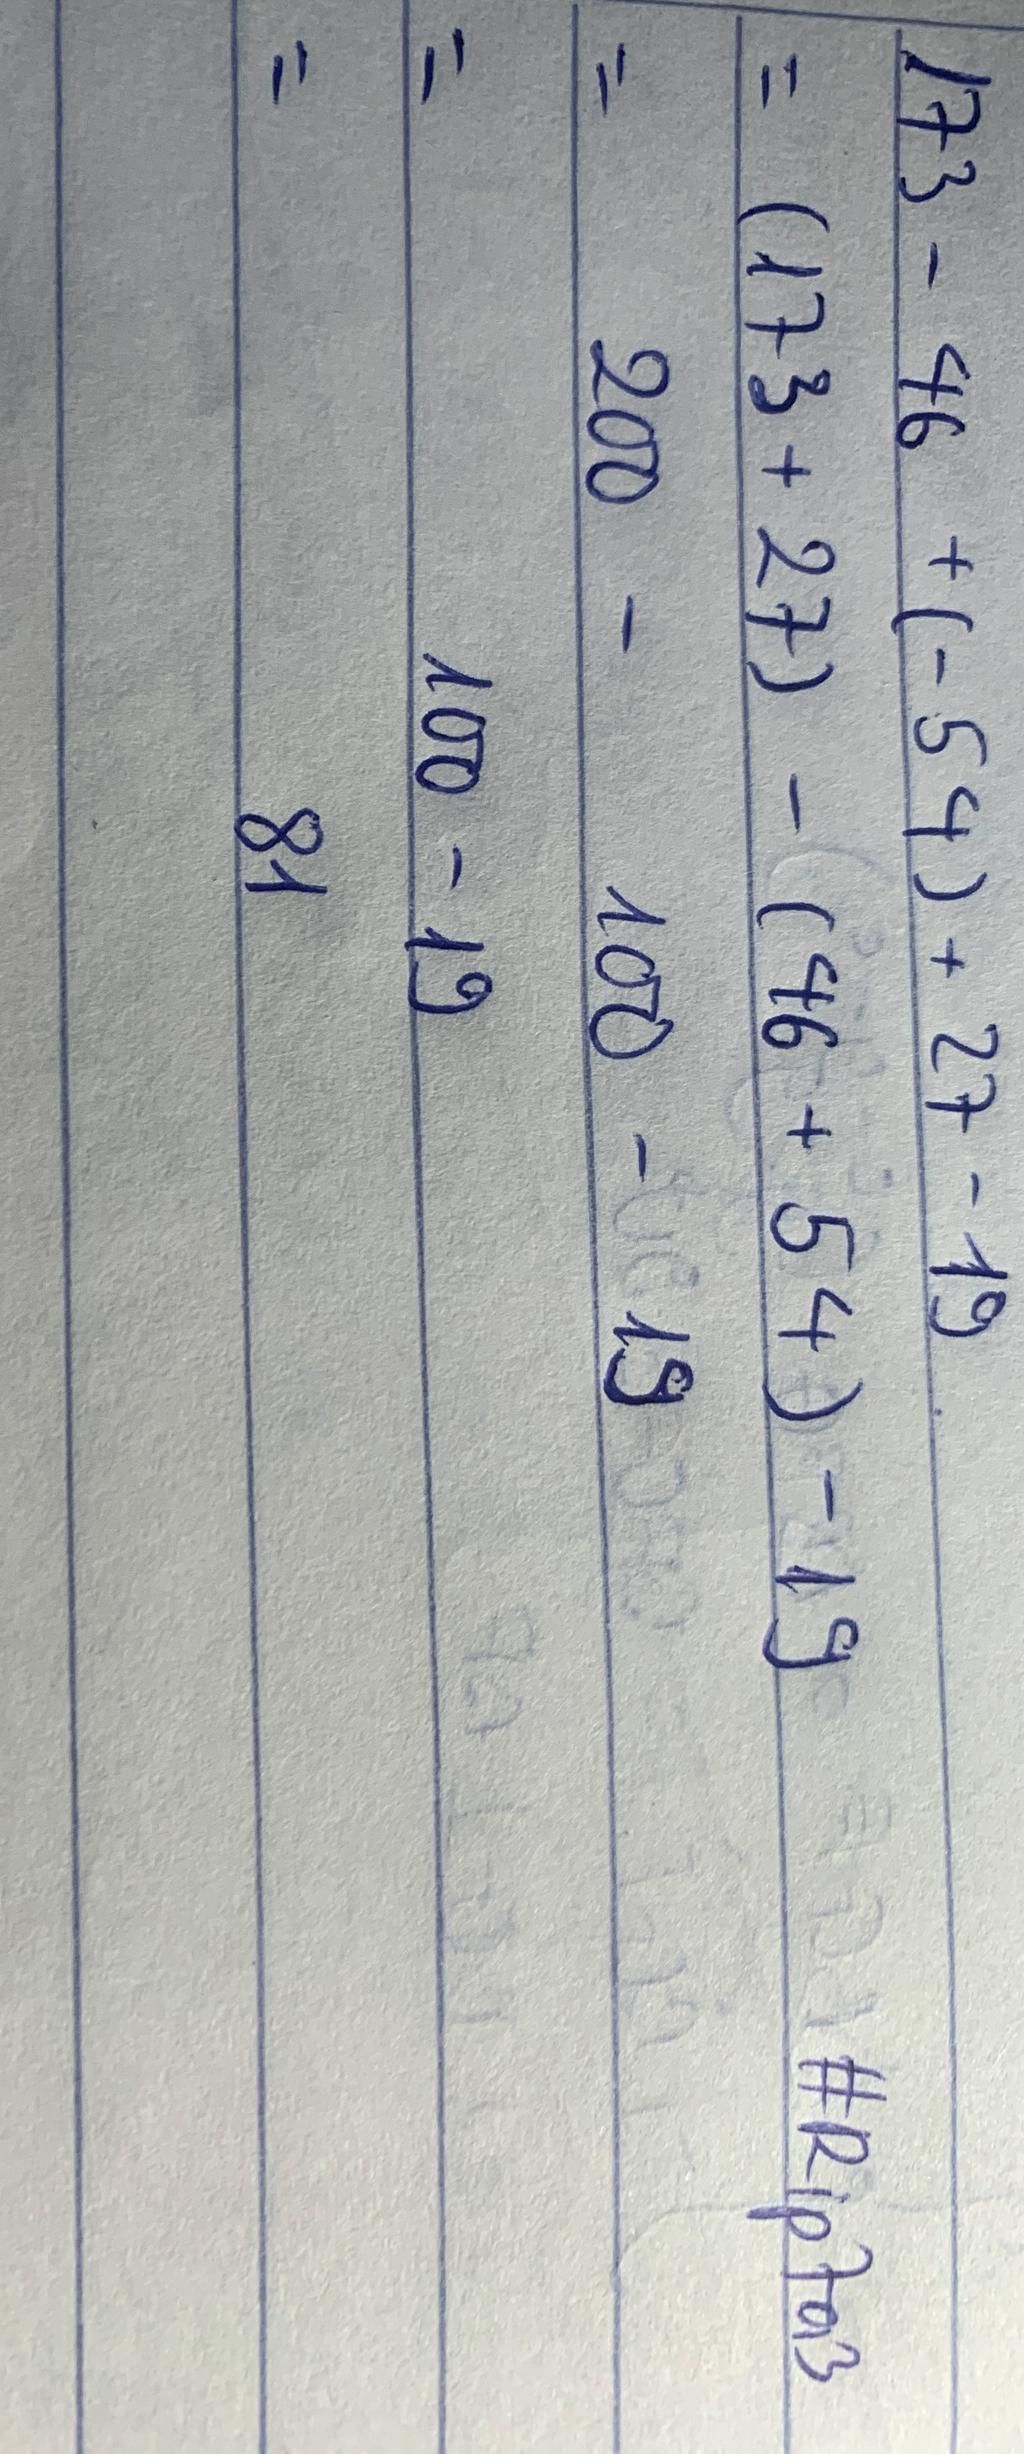 173 - 46 + (- 54) + 27 - 19
= (173 + 27) - (46 + 54) - 19
= 200 - 100 - 19
= 100 - 19
= 81